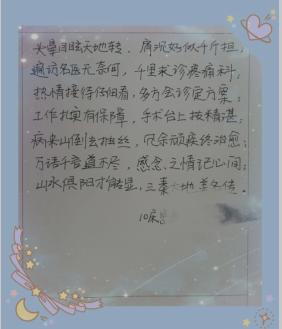 头晕目眩天地转，肩沉好似千斤担；
遍访名医无奈何，千里求诊疼痛科；
热情接待仔细看，多方会诊定方案；
工作扎实有保障，手术台上技精湛；
病来山倒去抽丝，沉余顽疾终治愈；
万语千言道不尽，感念之情记心间；
山水俱阳才能显，三秦大地美名传。
10床